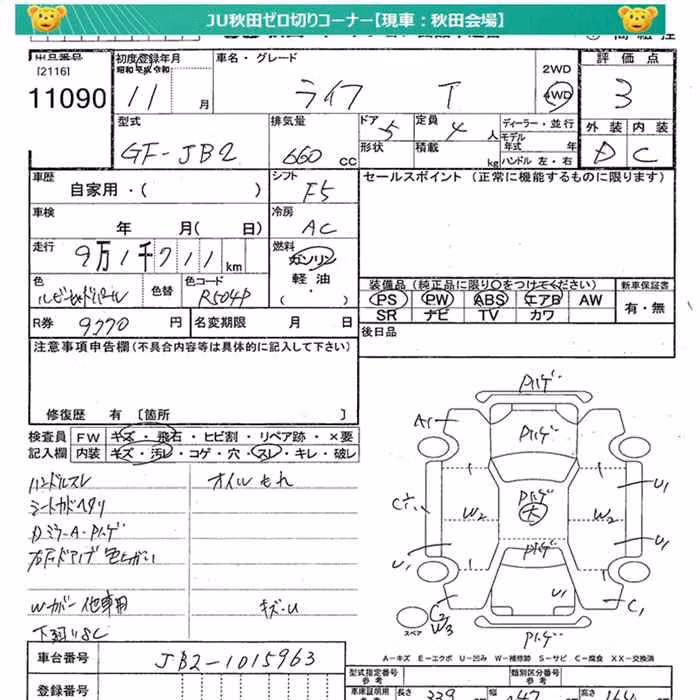 JU秋田ゼロ切りコーナー【現車：秋田会場】
出品番号 初度登録年月 車名・グレード 2WD 評価点
[2116] 昭和 平成 令和
11090 11 月 ライフ T 4WD 3
型式 排気量 ドア 定員 ディーラー・並行 外装 内装
GF-JB2 660 CC 5 4 人 モデル年式 年 D C
形状 積載 kg ハンドル 左・右
車歴 シフト セールスポイント (正常に機能するものに限ります)
自家用・( ) F5
車検 冷房
年 月( 日) AC
走行 燃料
9万1千711 km ガソリン
軽油
色 色替 色コード ( ・ )
R504P
装備品 (純正品に限り○をつけてください) 新車保証書
PS PW ABS エアB AW 有・無
SR ナビ TV カワ
R券 9770 円 名変期限 月 日 後日品
注意事項申告欄 (不具合内容等は具体的に記入して下さい)
修復歴 有 [箇所 ]
検査員 FW キズ・飛石・ヒビ割・リペア跡・×要
記入欄 内装 キズ・汚レ・コゲ・穴・スレ・キレ・破レ
ハンドルスレ オイルもれ
シートカドヘタリ
Dミラ-A・Pハゲ
Wカバー 他車用 キズ・U
下回りSC
Pハゲ
A1 Pハゲ
U1
Pハゲ
大
W2 W2
Pハゲ
U1 U1
U1
C1
W3
スペア
Pハゲ
A-キズ E-エクボ U-凹み W-補修跡 S-サビ C-腐食 XX-交換済
車台番号 JB2-1015963
型式指定番号 参考 類別区分番号 参考
登録番号 車庫証明用 参考 長さ 339 幅 147 高さ